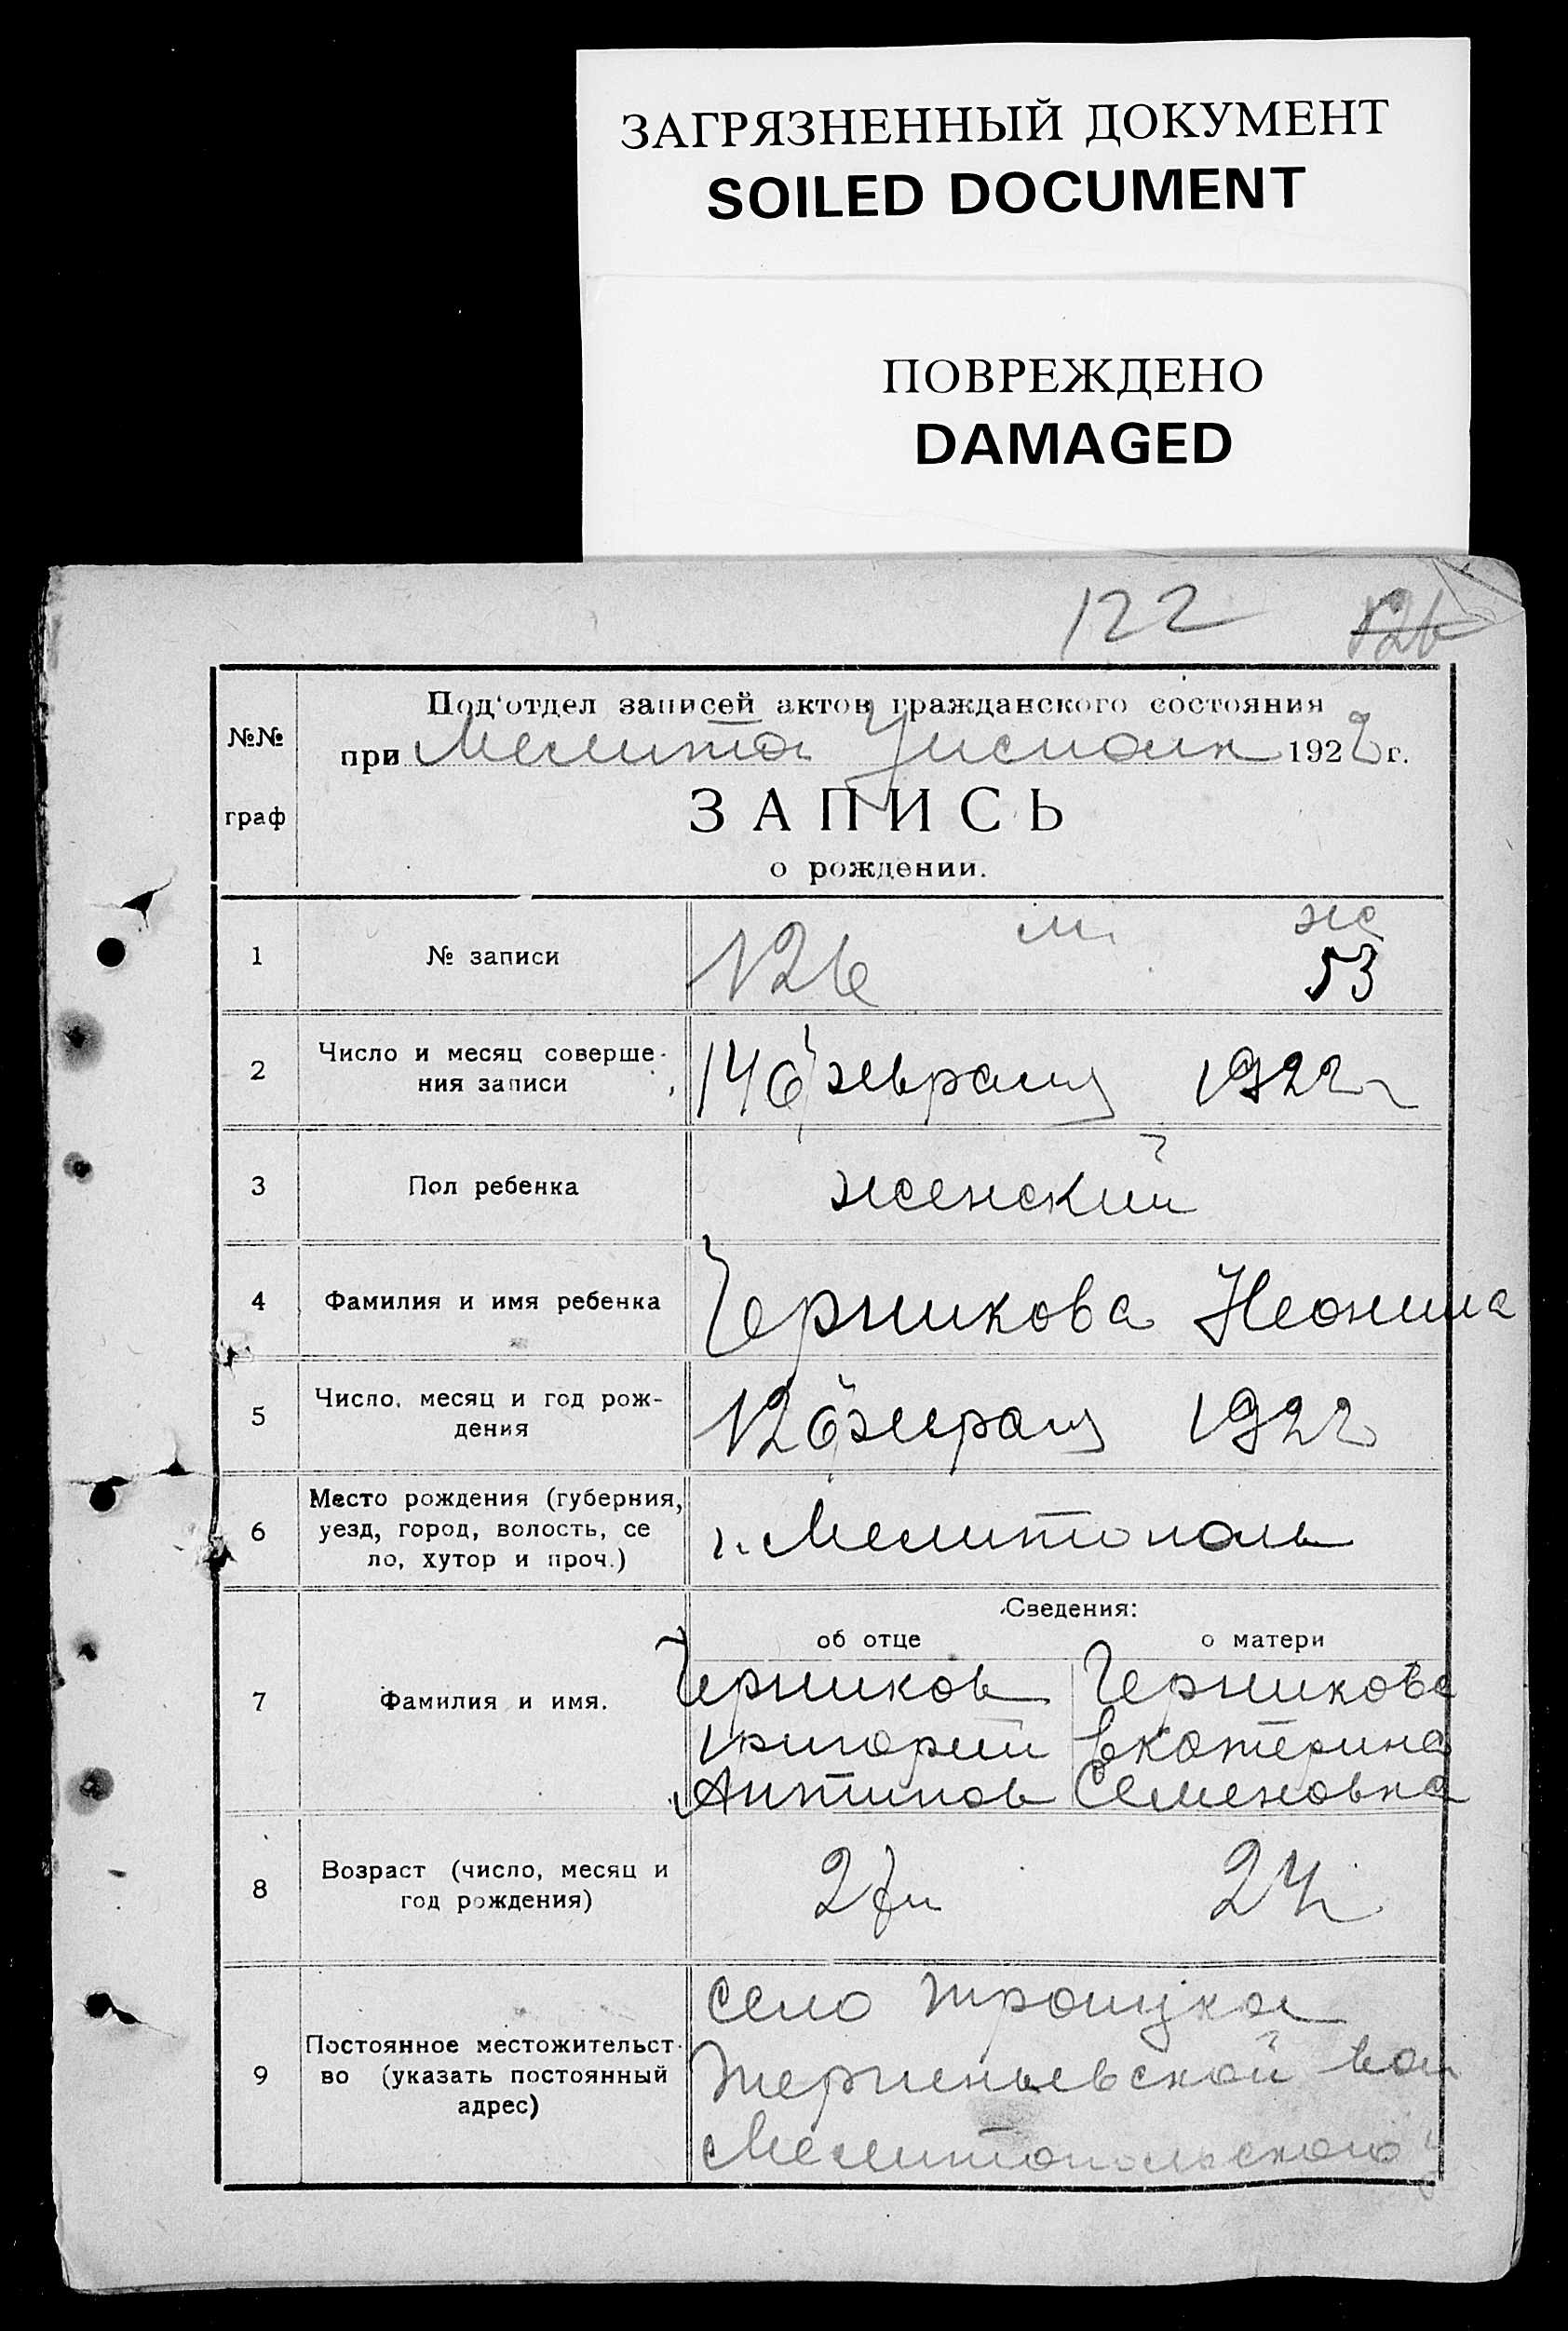 ЗАГРЯЗНЕННЫЙ ДОКУМЕНТ
SOILED DOCUMENT
ПОВРЕЖДЕНО
DAMAGED
122 126
№№ граф
Под'отдел записей актов гражданского состояния
при Мелитоп Уисполк 1922 г.
ЗАПИСЬ
о рождении.
м. ж
1 № записи 126 53
2 Число и месяц соверше-
ния записи 14 февраля 1922 г
3 Пол ребенка женский
4 Фамилия и имя ребенка Черникова Неонила
5 Число, месяц и год рож-
дения 12 февраля 1922
6 Место рождения (губерния,
уезд, город, волость, се
ло, хутор и проч.) г. Мелитополь
Сведения:
об отце о матери
7 Фамилия и имя. Черников Черникова
Григорий Екатерина
Антипов Семеновна
8 Возраст (число, месяц и
год рождения) 27 л 24
9 Постоянное местожительст-
во (указать постоянный
адрес)
село Троицкое
Терпеньевской вол
Мелитопольского у